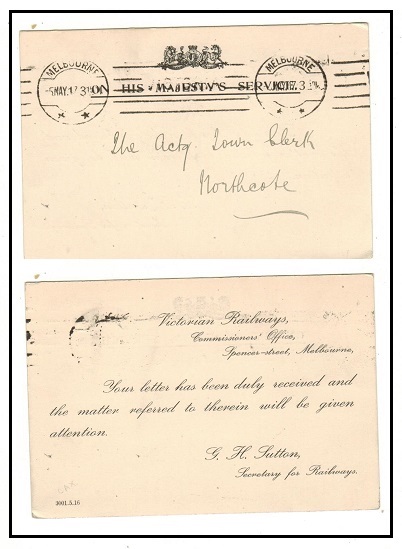 MELBOURNE
MELBOURNE
ON HIS MAJESTY'S SERVICE.
The Actg Town Clerk
Northcote
Victorian Railways,
Commissioners' Office,
Spencer-street, Melbourne,
Your letter has been duly received and
the matter referred to therein will be given
attention.
G. H. Sutton,
Secretary for Railways.
3001.5.16